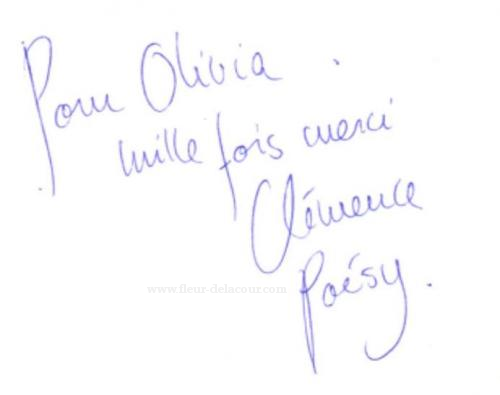 Pour Olivia
mille fois merci
Clémence
Poésy.
www.fleur-delacour.com